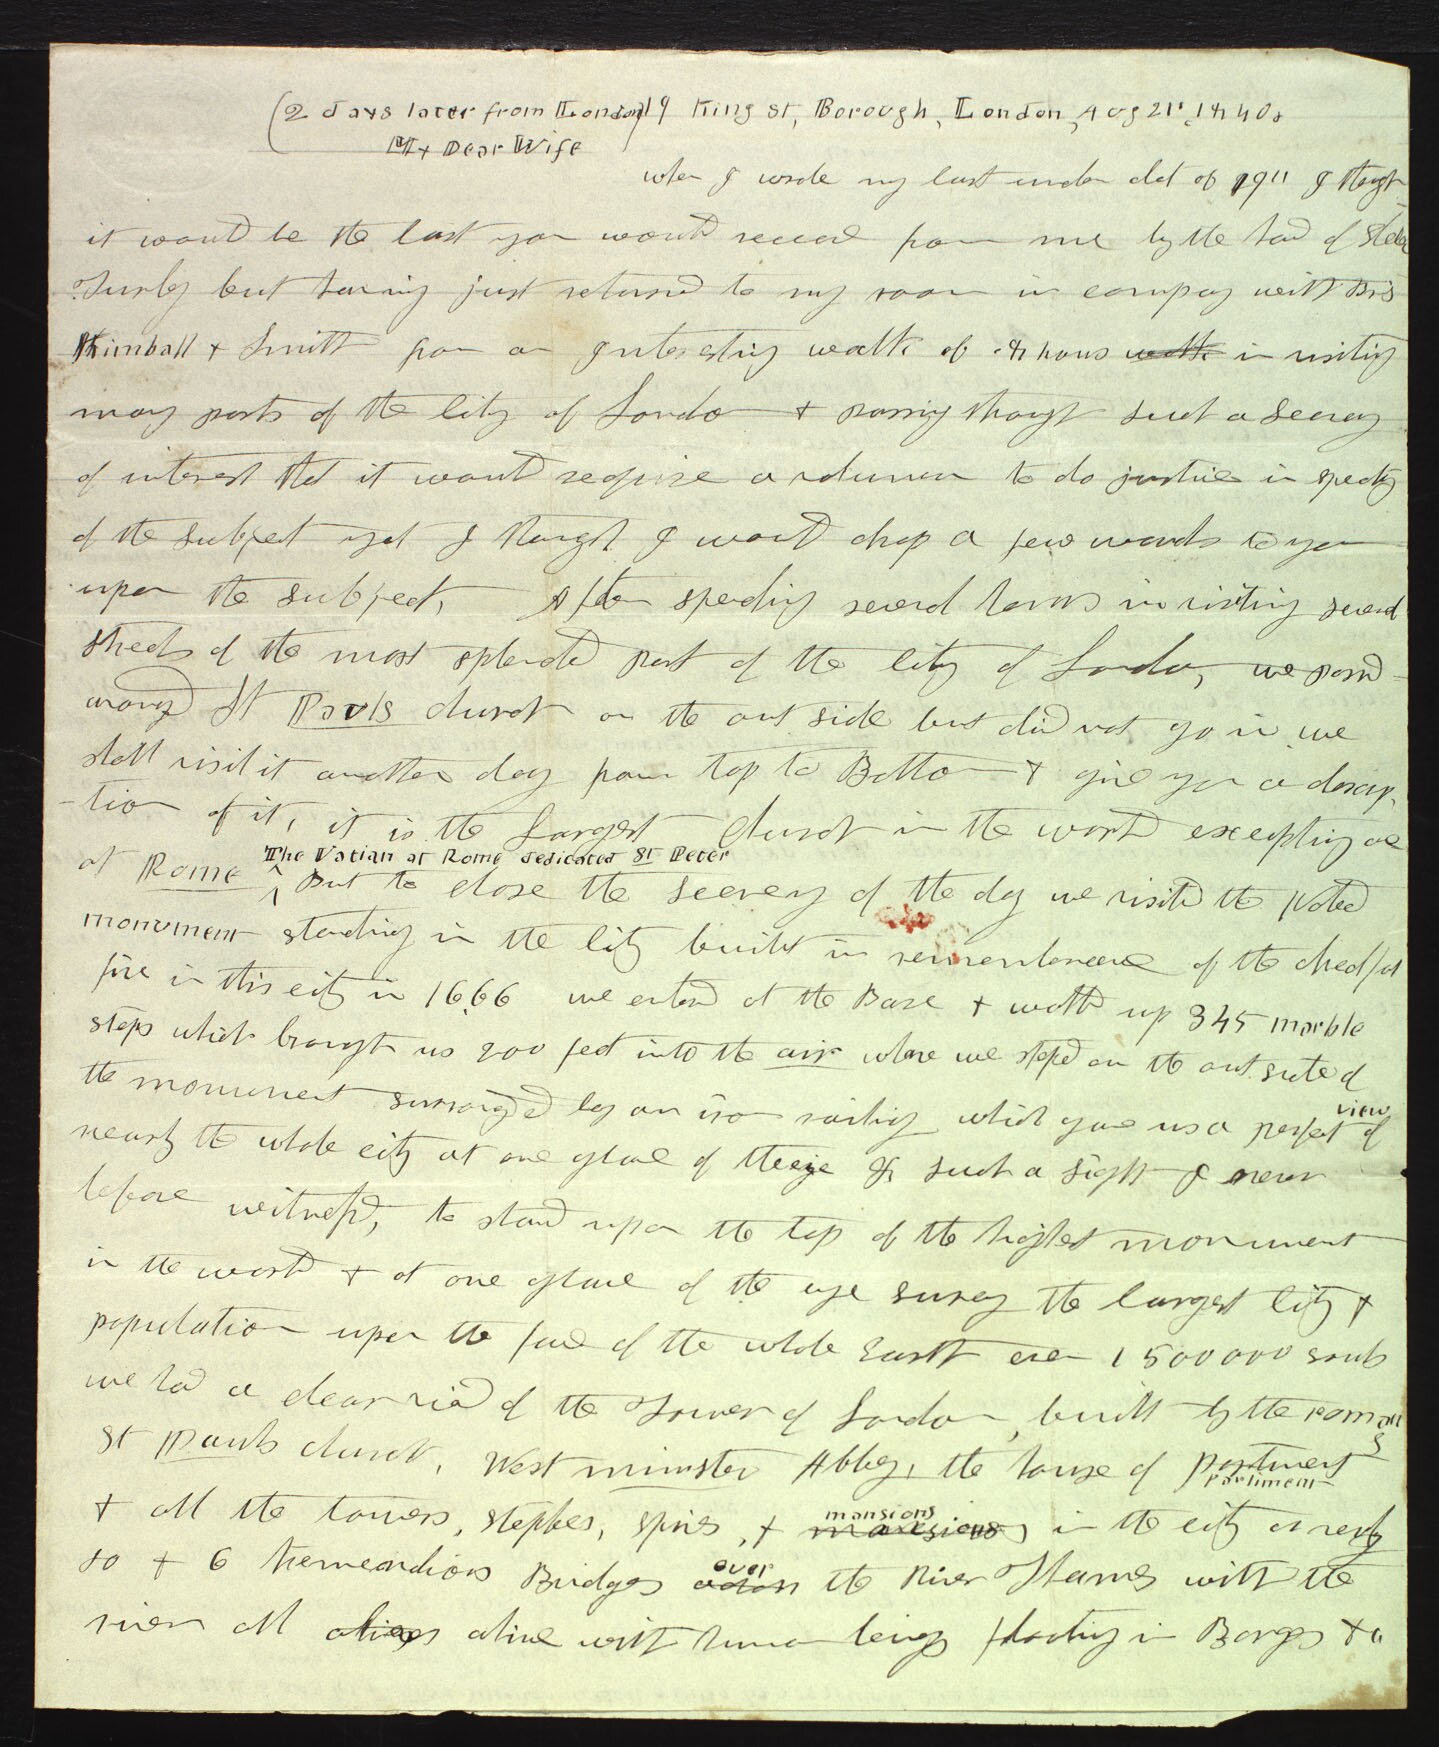 (2 days later from London) 19 King St, Borough, London, Aug 21st 1840.
My Dear Wife
when I wrote my last under dat of 19" I thought
it would be the last you would receive from me by the hand of Elder
Turley but having just returned to my room in compay with Brs
Kimball + Smith from an Interesting walk of hours walk in visiting
many parts of the City of London + passing through such a Scenery
of interest that it would require a volumn to do justice in speaking
of the subject yet I thought I would drop a few words to you
upon the subject, After spending several hours in visiting several
streets of the most splendid part of the City of London, we passd
around St Pauls church on the out side but did not go in we
shall visit it another day from top to Bottom + give you a discrip-
tion of it, it is the Largest church in the world excepting one
at Rome The Vatian at Rome dedicated St Peter
But to close the Scenery of the day we visited the Noted
monument standing in the City built in rememberance of the dredful
fire in this city in 1666 we enterd at the Base + walkd up 345 marble
steps which brought us 200 feet into the air whare we steped on the out side of
the monument surroundd by an iron railing which gave us a perfect view of
nearly the whole city at one glance of the eye & such a sight I never
before witnessd, to stand upon the top of the highest monument
in the world + at one glance of the eye survey the largest City +
population upon the face of the whole Earth even 1500000 souls
we had a clear vied of the Tower of London, built by the romans
St Pauls church, West minister Abbey, the house of Parliment
Parliment
+ all the towers, steples, spires, + mansions in the city or nearly
so + 6 tremendious Bridges over across the River Thames with the
river all alive with human beings floating in Barges + a